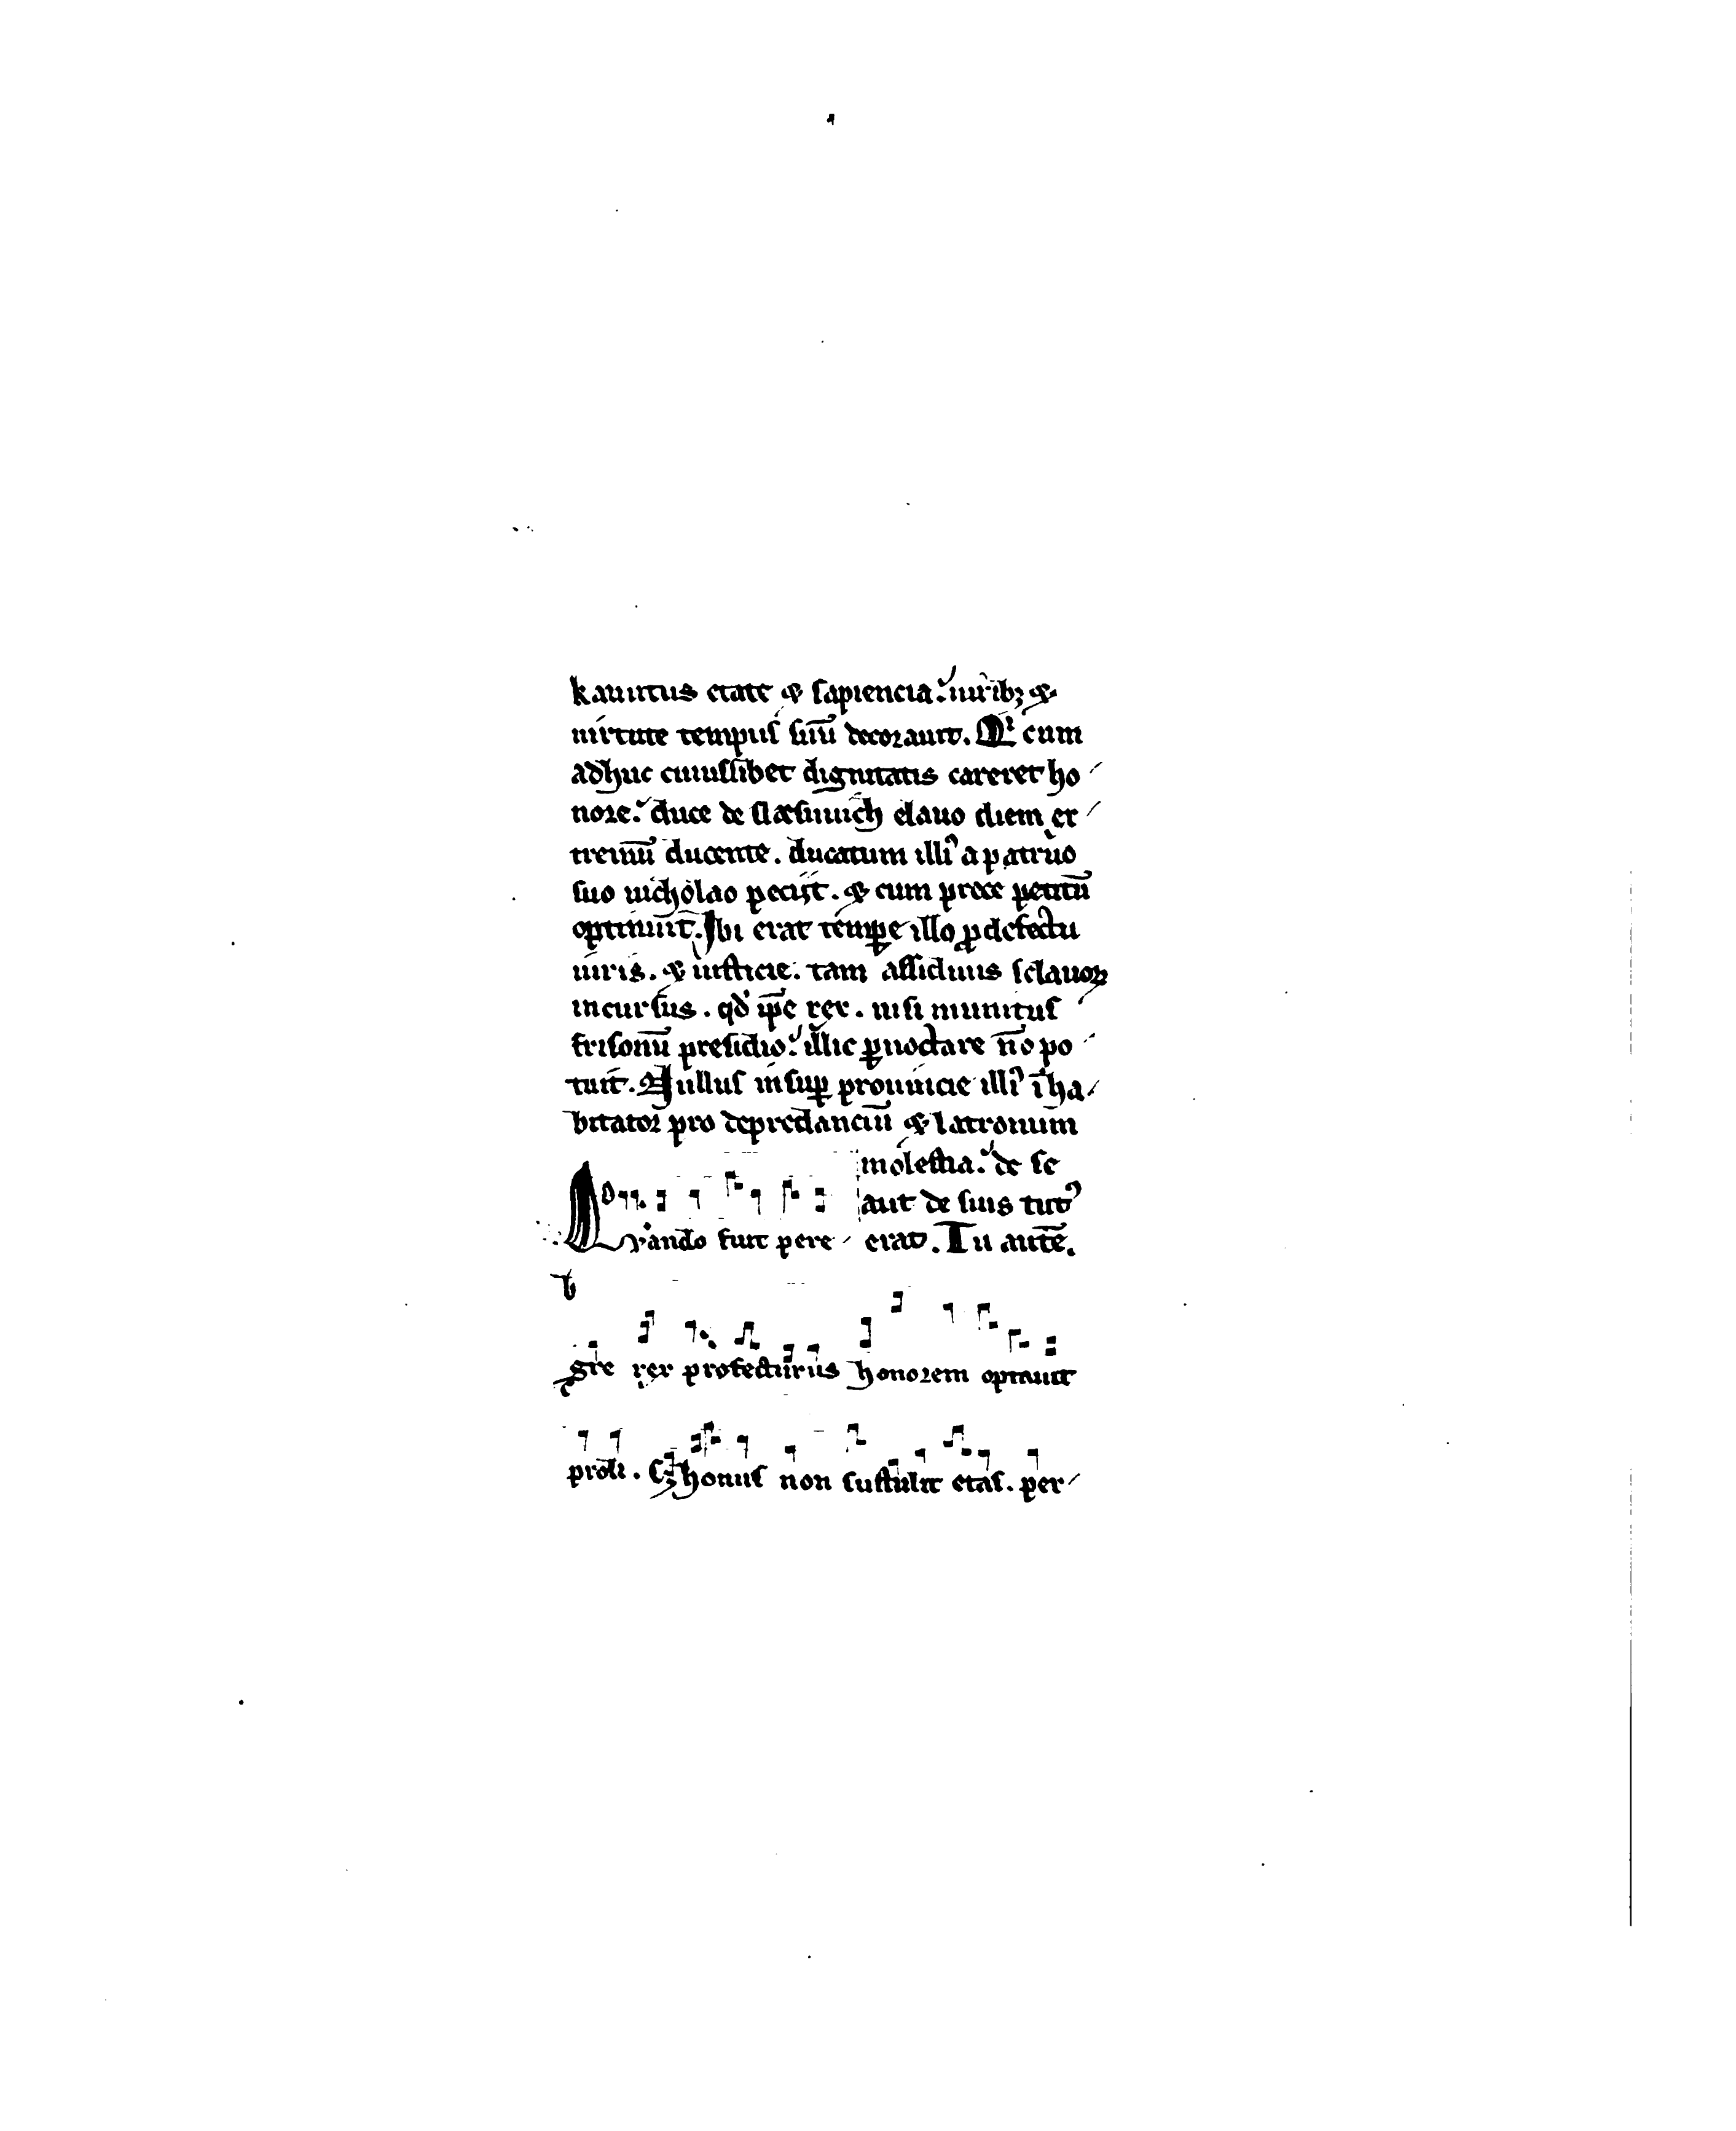 kanutus etate ⁊ sapiencia. uirib; ⁊
uirtute tempus suū decorauit. Qͥ cum
adhuc cuiuslibet dignitatis careret ho
nore. duce de slæsuuich elauo diem ex
tremū ducente. ducatum illiꝰ a patruo
suo nicholao peciit. ⁊ cum prece petitū
optinuit. Ibi erat temꝑe illo ꝓ defectu
uiris. ⁊ iusticie. tam assiduus sclauoꝝ
incursus. qd̕ ip̄e rex. nisi munitus
frisonū presidio. illic ꝑnoctare nō po
tuit. Nullus insuꝑ prouincie illiꝰ īha
bitator pro depredanciū ⁊ latronum
molestia. de se
aut de suis tutꝰ
erat. Tu autē.
Orando fuit pere
gre rex profecturus honorem optauit
proli. Sꝫ honus non sustulit etas. per